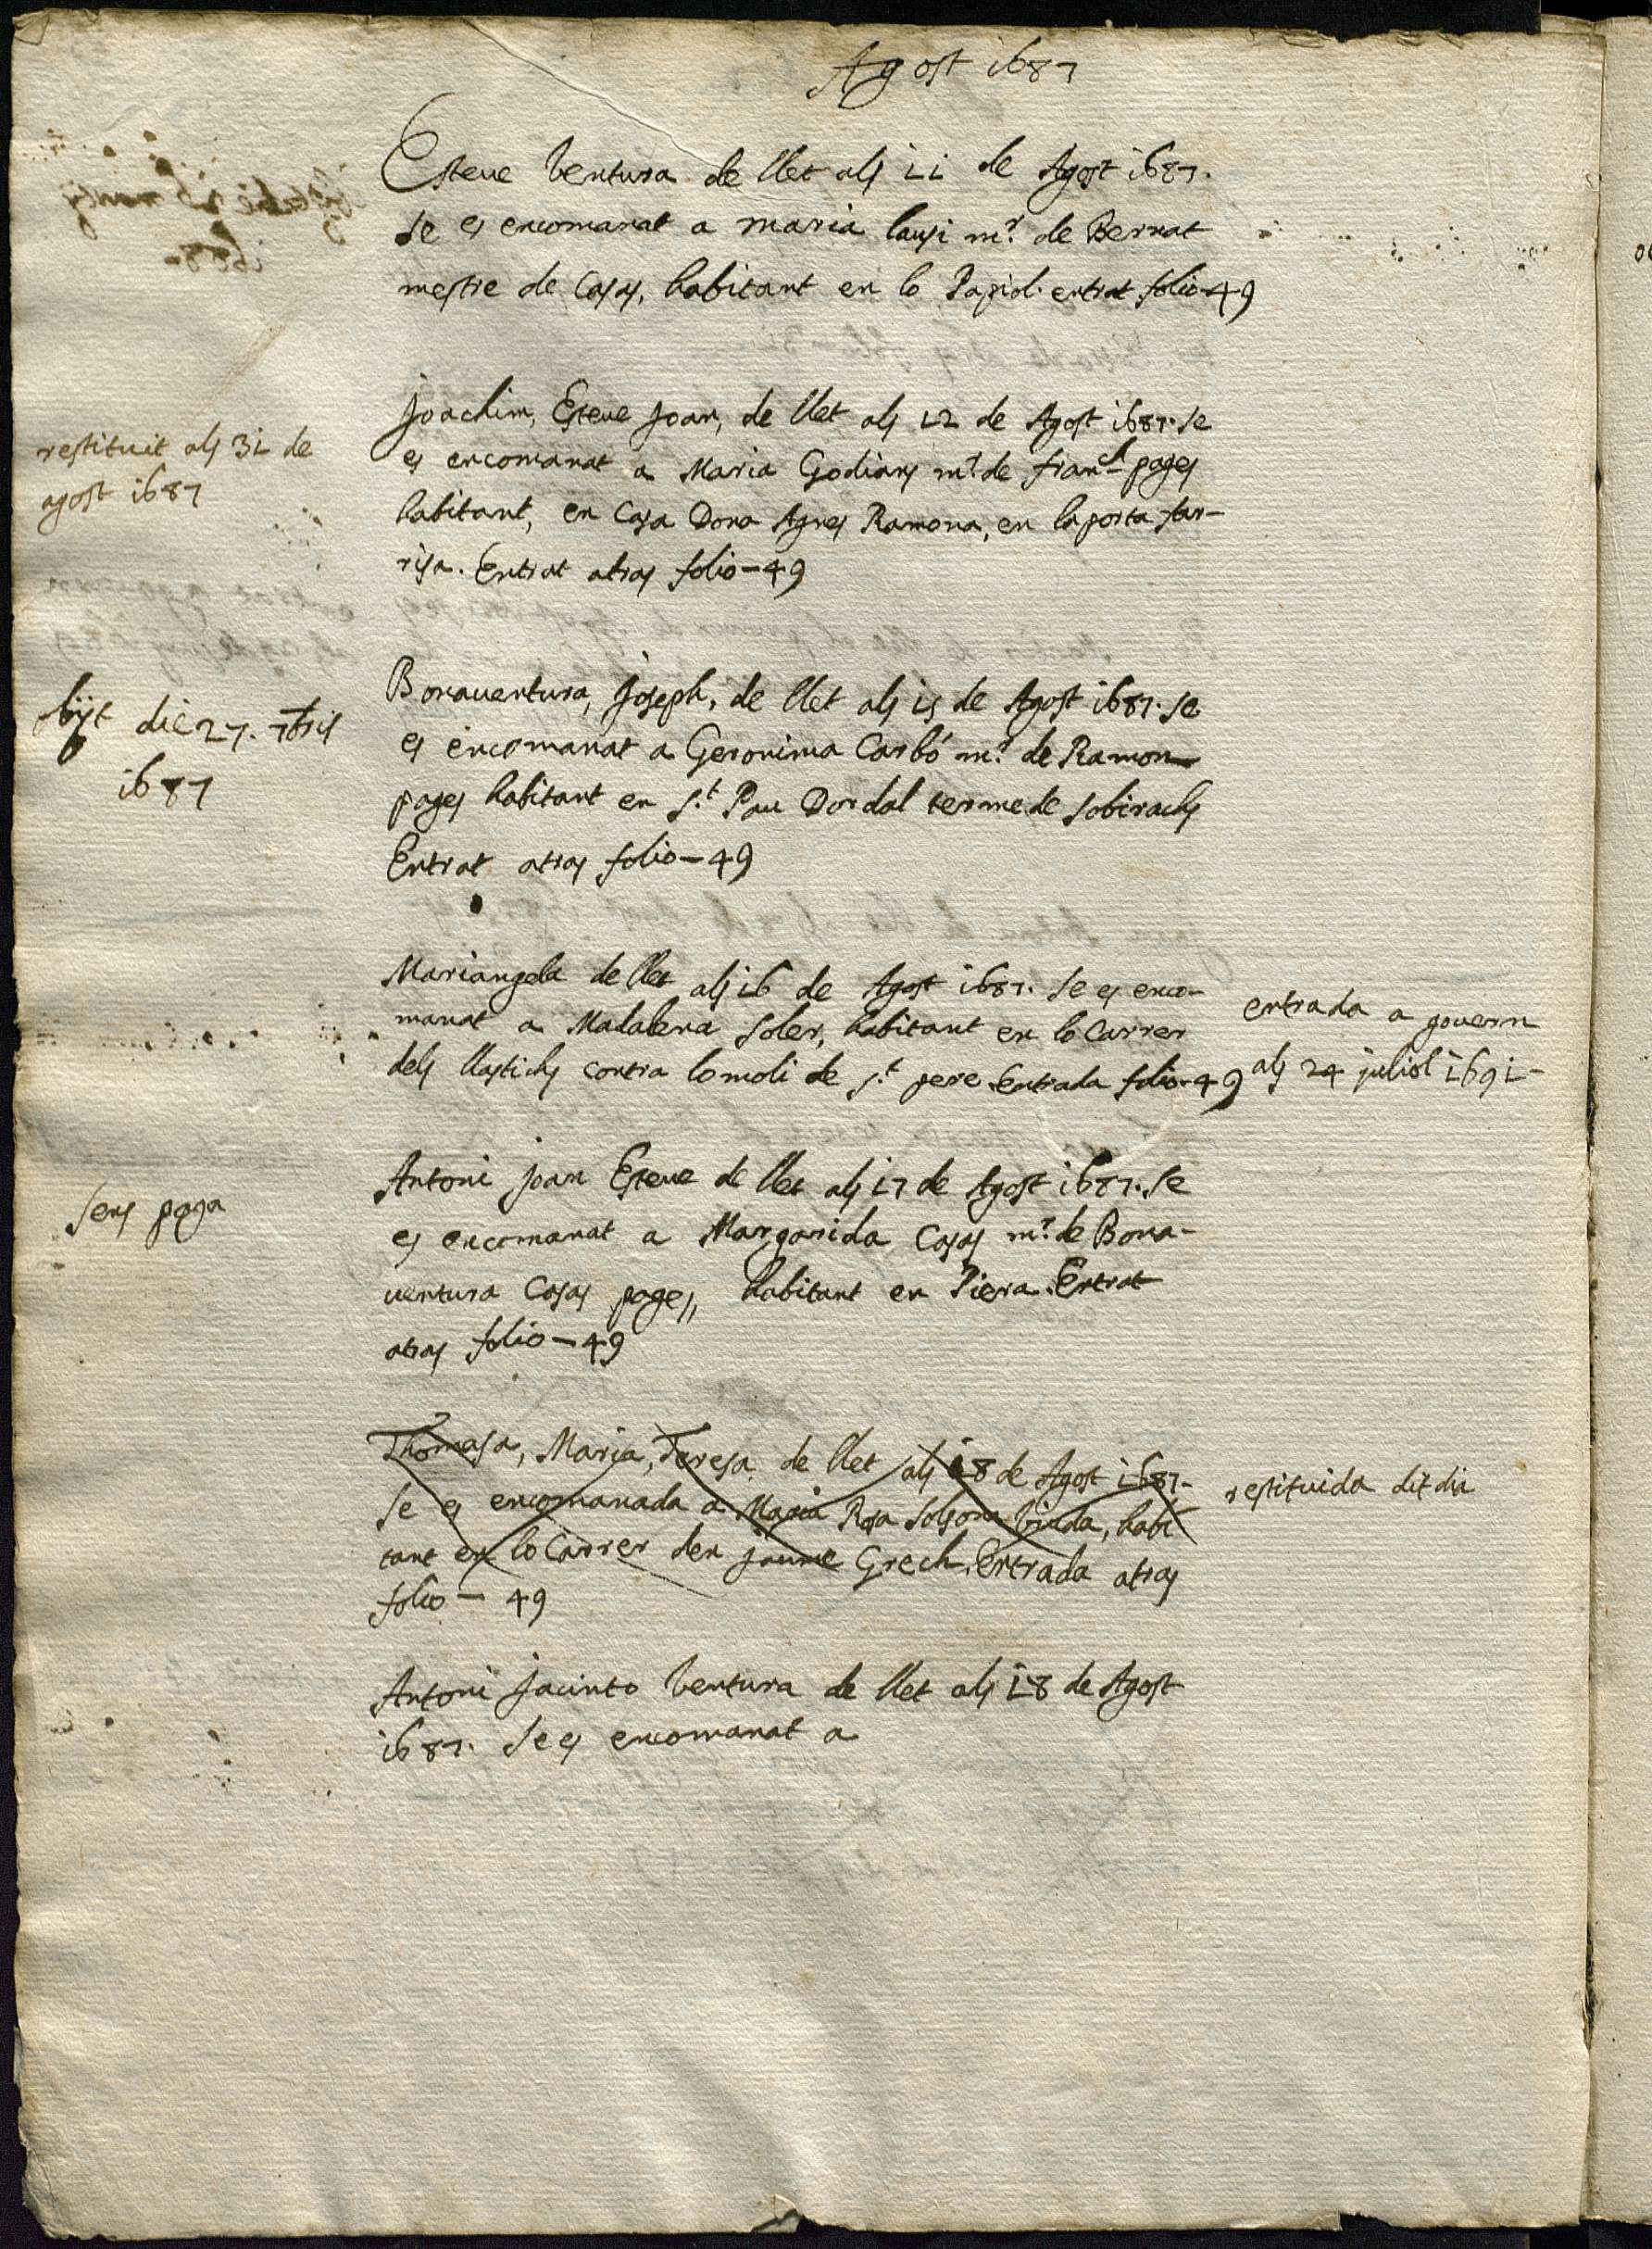 Agost 1687
Esteve Ventura de llet als 11 de Agost 1687.
se es encomanat a maria lausi mr. de Bernat
mestre de Casas, habitant en lo Papiol. entrat folio-49
restituit als 31 de
agost 1687
Joachim, Esteve Joan, de llet als 12 de Agost 1687. se
es encomanat a Maria Godians mr. de Franch pages
habitant, en Casa Dona Agnes Ramona, en la porta far-
risa. Entrat atras folio-49
obijt die 27. 7bris
1687
Bonaventura, Joseph, de llet als 15 de Agost 1687. se
es encomanat a Geronima Carbó mr. de Ramon
pages habitant en St. Pau Dordal terme de Sobirachs
Entrat atras folio-49
Mariangela de llet als 16 de Agost 1687. se es enco-
manat a Madalena Soler, habitant en lo Carrer
dels llastichs contra lo moli de St. pere. Entrada folio-49
entrada a govern
als 24 juliol 1691-
sens paga
Antoni Joan Esteve de llet als 17 de Agost 1687. se
es encomanat a Margarida Casas mr. de Bona-
ventura Casas pages, habitant en Piera. Entrat
atras folio-49
Thomasa, Maria, Teresa de llet als 18 de Agost 1687-
se es encomanada a Maria Rosa Solsona Viuda, habi
tant en lo Carrer den Jaume Grech. Entrada atras
folio- 49
restituida dit dia
Antoni Jacinto Ventura de llet als 18 de Agost
1687. se es encomanat a